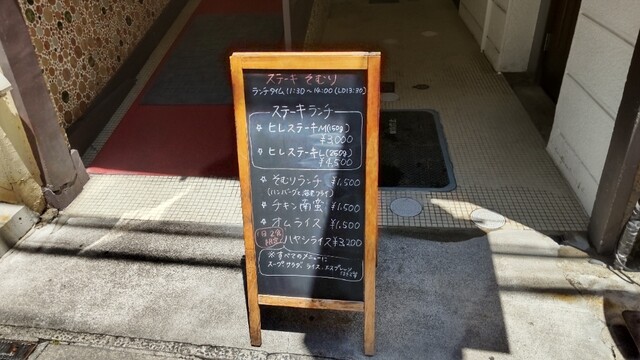 ステーキ そむり
ランチタイム 11:30～14:00 (LO13:30)
ステーキランチ
☆ ヒレステーキM(150g)
¥3,000
☆ ヒレステーキL(250g)
¥4,500
☆ そむりランチ ¥1,500
(ハンバーグと海老フライ)
☆ チキン南蛮 ¥1,500
☆ オムライス ¥1,500
ハヤシライス ¥3,200
※すべてのメニューに
スープ、サラダ、ライス、エスプレッソ